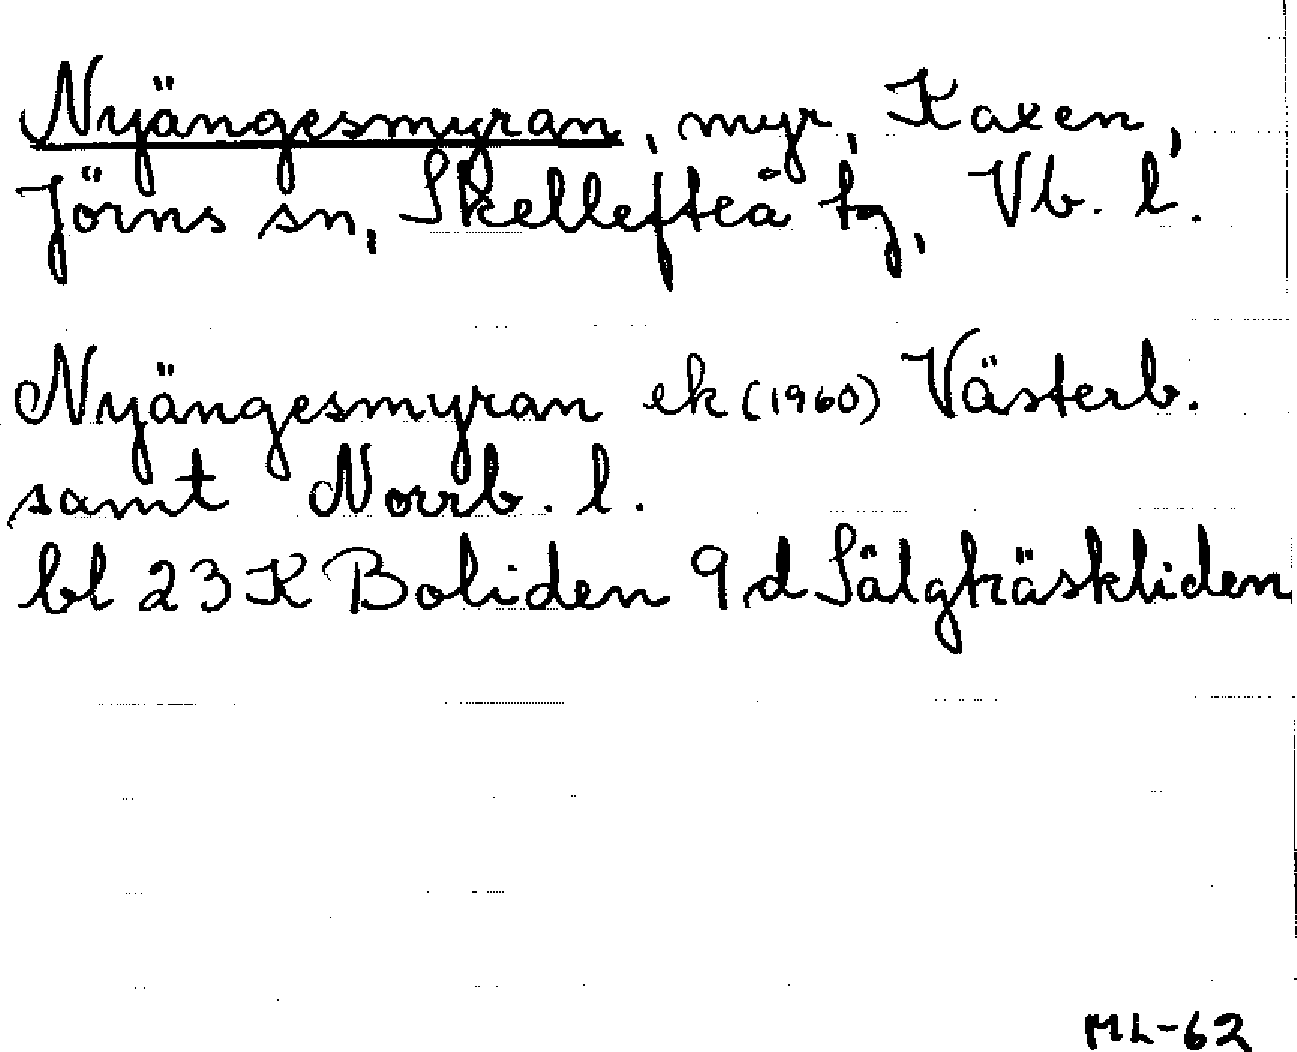 Nyängesmyran, myr, Kaxen,
Jörns sn, Skellefteå tg, Vb. l.
Nyängesmyran ek (1960) Västerb.
samt Norrb. l.
bl 23 K Boliden 9 d Sälgträskliden
ML-62